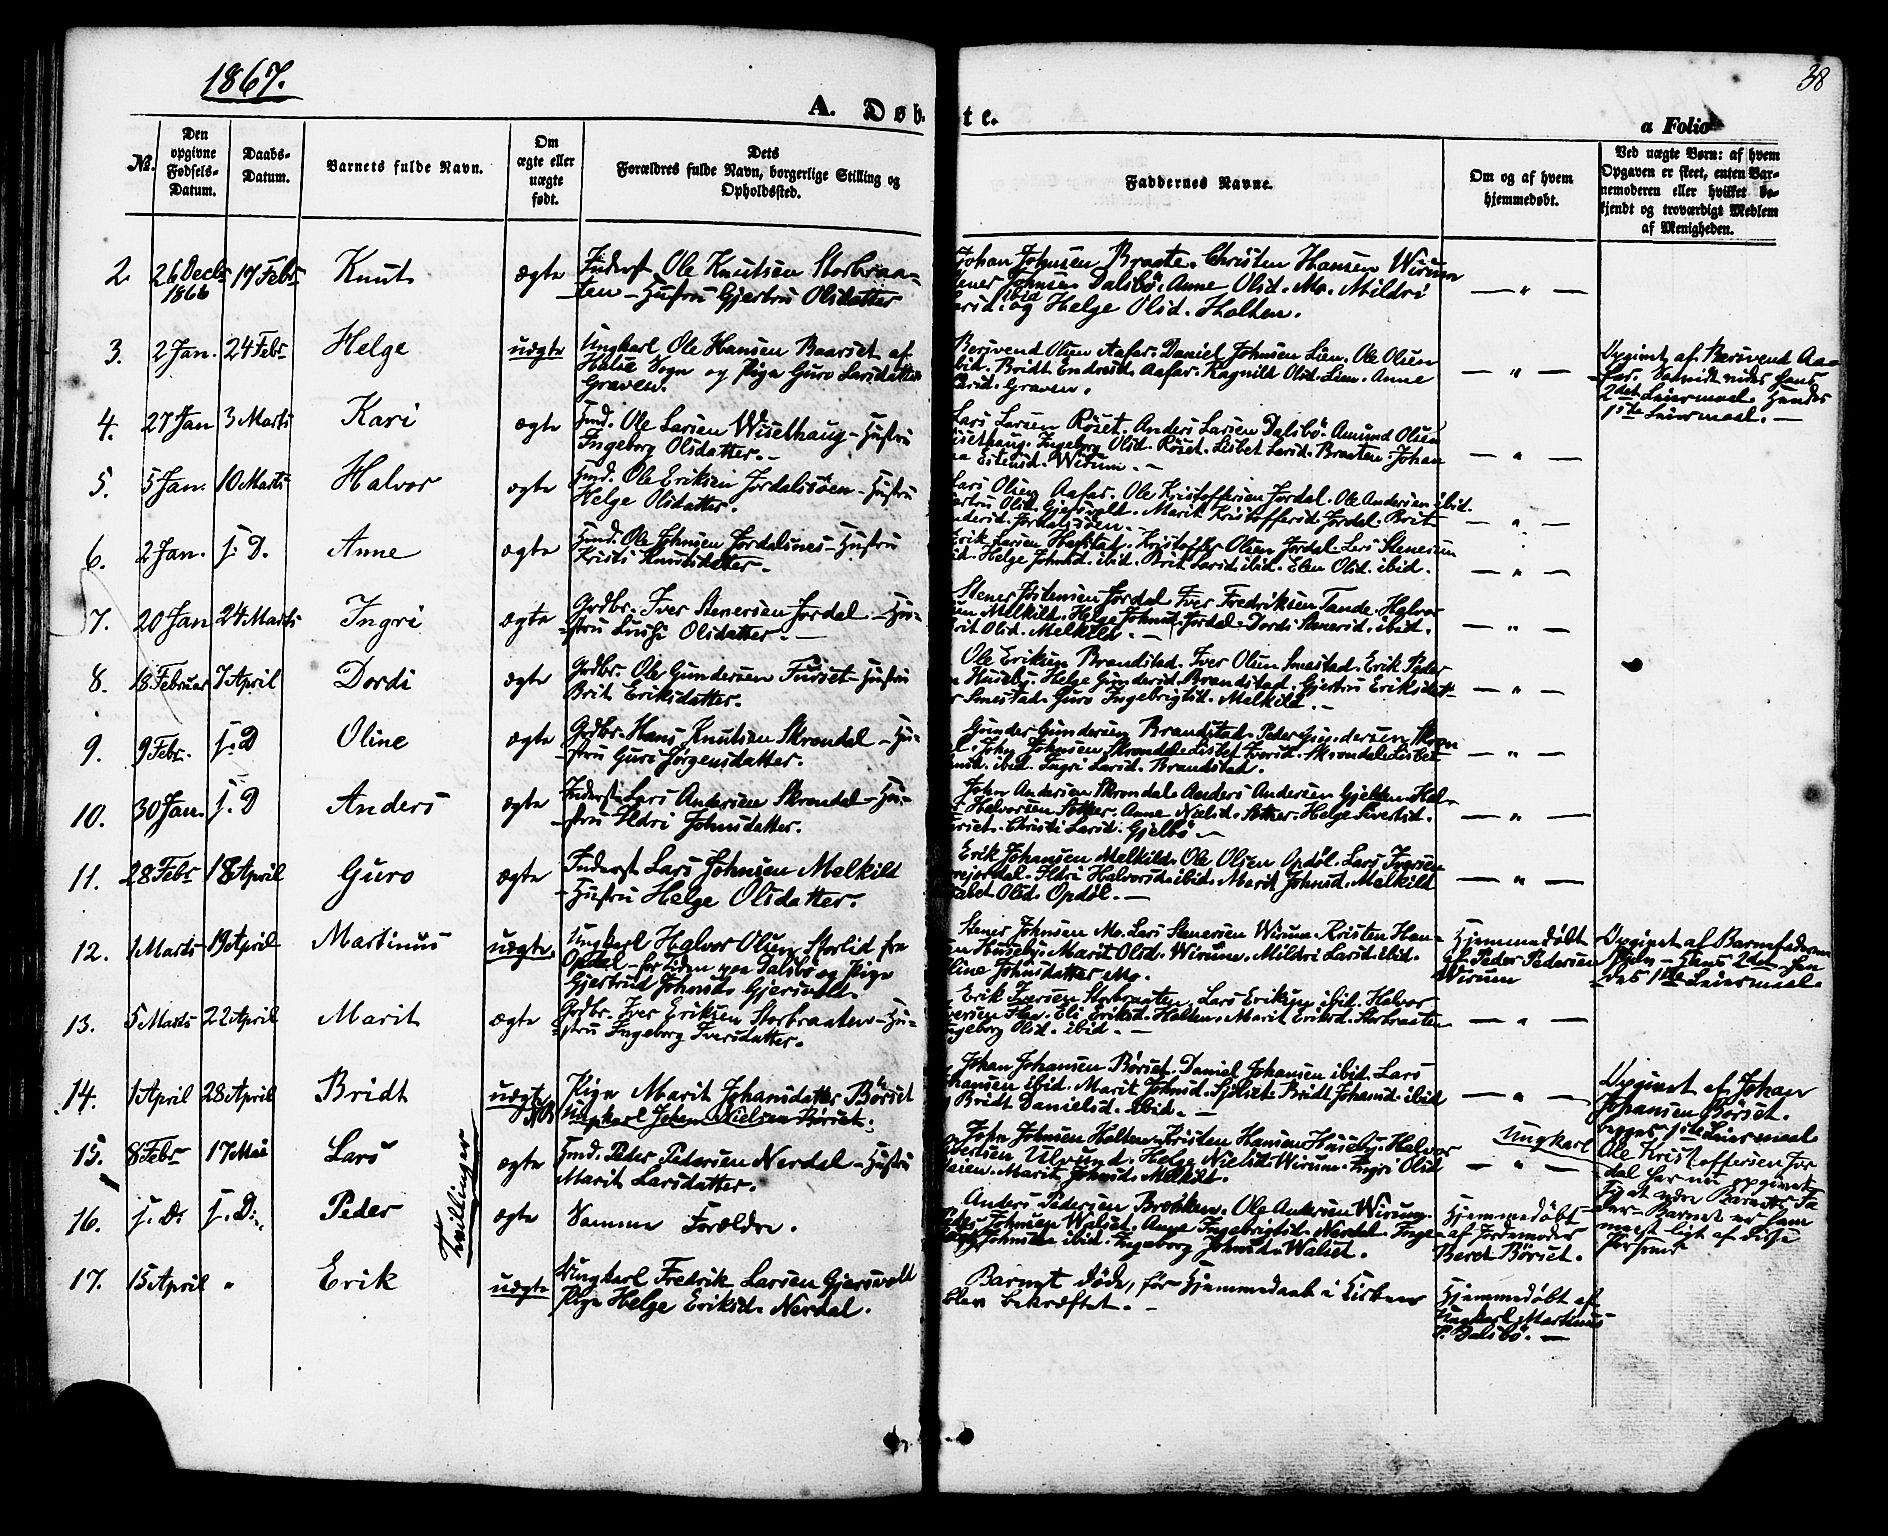 1867.
38
A. Døb. te.
a Folio
No.
Den
opgivne
Fødsels-
Datum.
Daabs-
Datum.
Barnets fulde Navn.
Om
ægte eller
uægte
født.
Dets
Forældres fulde Navn, borgerlige Stilling og
Opholdssted.
Faddernes Navne.
Om og af hvem
hjemmedøbt.
Ved uægte Børn: af hvem
Opgaven er skeet, enten Bar-
nemoderen eller hvilket be-
kjendt og troværdigt Medlem
af Menigheden.
2 26 Decbr 1866 17 Febr Knut ægte
Inderst Ole Knutsen Storbraa-
ten - Hustru Gjertru Olsdatter
Johan Johnsen Braate. Christen Hansen Wirum
Stener Johnsen Dalsbö. Anne Olsd. Mo. Mildri
Larsd. ibid og Helge Olsd. Holten.
— " —
3. 2 Jan. 24 Febr Helge uægte
Ungkarl Ole Hansen Baarset af
Halse Sogn og Pige Guro Larsdatter
Graven.
Berivend Olsen Aafar. Daniel Johnsen Lien. Ole Olsen
ibid. Bridt Endresd. Aafar. Ragnild Olsd. Lien. Anne
Graven.
— " —
Opgivet af Berivend Aa-
far.
2det Leiermaal. Hendes
1ste Leiermaal. —
4. 27 Jan 3 Marts Kari ægte
Hmd. Ole Larsen Wisethaug - Hustru
Ingeborg Olsdatter. -
Lars Larsen Röset. Anders Larsen Dalsbö. Amund Olsen
Wisethaug. Ingeborg Olsd. Röset. Lisbet Larsd. Braaten. Johan
na Estensd. Wirum. -
— " —
5. 5 Jan. 10 Marts Halvor ægte
Hmd. Ole Eriksen Jordalsöen - Hustru
Helge Olsdatter.
Lars Olsen Aafar. Ole Kristoffersen Jordal. Ole Andersen ibid.
Gjertru Olsd. Gjersvolt. Marit Kristoffersd. Jordal. Brit
Andersd. Jordalsöen. -
— " —
6. 2 Jan. s. D. Anne ægte
Hmd. Ole Johnsen Jordalsnes - Hustru
Kristi Knutsdatter.
Erik Larsen Harstad. Kristoffer Olsen Jordal. Lars Stenersen
ibid. Helge Johnsd. ibid. Brit Larsd. ibid. Elen Olsd. ibid.
— " —
7. 20 Jan 24 Marts Ingri ægte
Grdbr. Iver Stenersen Jordal - Hu-
stru Olsdatter. —
Stener Jöstensen Jordal. Iver Fredriksen Tande. Halvor
Melkild. Helge Johnsd. Jordal. Dordi Stenersd. ibid.
Brit Olsd. Melkild. —
— " —
8. 18 Februar 7 April Dordi ægte
Grdbr. Ole Gundersen Furset - Hustru
Brit Eriksdatter.
Ole Eriksen Brandstad. Iver Olsen Smestad. Erik Peder
sen Huseby. Helge Gundersd. Brandstad. Gjertru Eriksdat-
ter Smestad. Guro Ingebrigtsd. Melkild. -
— " —
9. 9 Febr. s. D Oline ægte
Grdbr. Hans Knutsen Skrondal - Hu-
stru Guri Jörgensdatter.
Gunder Gundersen Brandstad. Peder Gundersen Skron
dal. John Johnsen Skrondal. Lisbet Iversd. Skrondal. Lisbet
ibid. Ingri Larsd. Brandstad.
— " —
10. 30 Jan. s. D Anders ægte
Inderst Lars Andersen Skrondal - Hu-
stru Ildri Johnsdatter.
John Andersen Skrondal. Anders Andersen Gjelten. Hal-
vor Halvorsen Sæther. Anne Nielsd. Sæther. Helge Sivertsd.
Furset. Christi Larsd. Gjelbö —
— " —
11. 28 Febr 18 April Guro ægte
Inderst Lars Johnsen Melkild
- Hustru Helge Olsdatter.
Erik Johansen Melkild. Ole Olsen Opdøl. Lars Iversen
Ildri Halvorsd. ibid. Marit Johnsd. Melkild
Lisbet Olsd. Opdøl. —
— " —
12. 1 Marts 19 April Martinus uægte
Ungkarl Halvor Olsen Storlid fra
Opdal - for Tiden paa Dalsbö og Pige
Gjertrud Johnsd. Gjersvold.
Stener Johnsen Mo. Lars Stenersen Wirum. Kristen Han-
sen Huseby. Marit Olsd. Wirum. Mildri Larsd. ibid.
Oline Johnsdatter Mo.
Hjemmedöbt
af Peder Pedersen
Wirum
Opgivet af Barnefaderen
- Hans 2det Hen
des 1ste Leiermaal.
13. 5 Marts 22 April Marit ægte
Grdbr. Iver Eriksen Storbraaten - Hu-
stru Ingeborg Iversdatter.
Erik Iversen Storbraaten. Lars Eriksen ibid. Halvor
Iversen Eli Eriksd. Holten. Marit Eriksd. Storbraaten
Ingeborg Olsd. ibid. —
— " —
14. 1 April 28 April Bridt uægte NB
Pige Marit Johansdatter Börset
Ungkarl Johan Nielsen Börset:
Johan Johansen Börset. Daniel Johansen ibid. Lars
Johansen ibid. Marit Johnsd. Sjölset. Bridt Johansd. ibid
og Bridt Danielsd. ibid. —
— " —
Opgivet af Johan
Johansen Börset.
1ste Leiermaal
Ungkarl
Ole Kristoffersen Jor
dal har nu opgivet
sig at være Barnets Fa
der. Barnet er ham
mest ligt af disse
Personer
15. 8 Febr 17 Mai Lars ægte
Tvillinger
Hmd. Peder Pedersen Nerdal - Hustru
Marit Larsdatter.
John Johnsen Holten. Kristen Hansen Huseby. Halvor
Ulvund. Helge Nielsd. Wirum. Ingri Olsd
Marit Johnsd. Melkild.
— " —
16. s. D. s. D. Peder ægte
Samme Forældre.
Anders Pedersen Broöken. Ole Andersen Wirum.
Peder Johnsen Walset. Anne Ingebrigtsd. Nerdal. Inge-
borg Johnsd. ibid. Ingeborg Johnsd. Walset.
Hjemmedöbt
af Jordemoder
Beret Börset.
17. 15 April " Erik uægte
Ungkarl Fredrik Larsen Gjersvolt
Pige Helge Eriksd. Nerdal.
Barnet döde, før Hjemmedaab i Kirken
blev bekræftet. -
Hjemmedöbt af
Ungkarl Martinus
P. Dalsbö. —